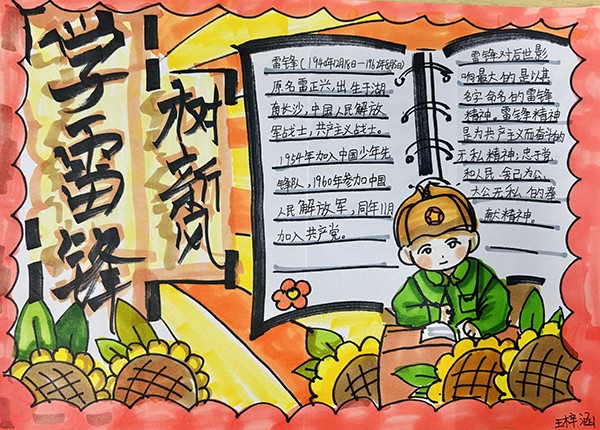 学雷锋
树新风
雷锋(1940年12月18日—1962年8月15日)
原名雷正兴,出生于湖
南长沙,中国人民解放
军战士,共产主义战士。
1954年加入中国少年先
锋队,1960年参加中国
人民解放军,同年11月
加入共产党。
雷锋对后世影
响最大的是以其
名字命名的雷锋
精神,雷锋精神
是为共产主义而奋斗的
无私精神,忠于党
和人民,舍己为公,
大公无私的奉
献精神。
王梓涵